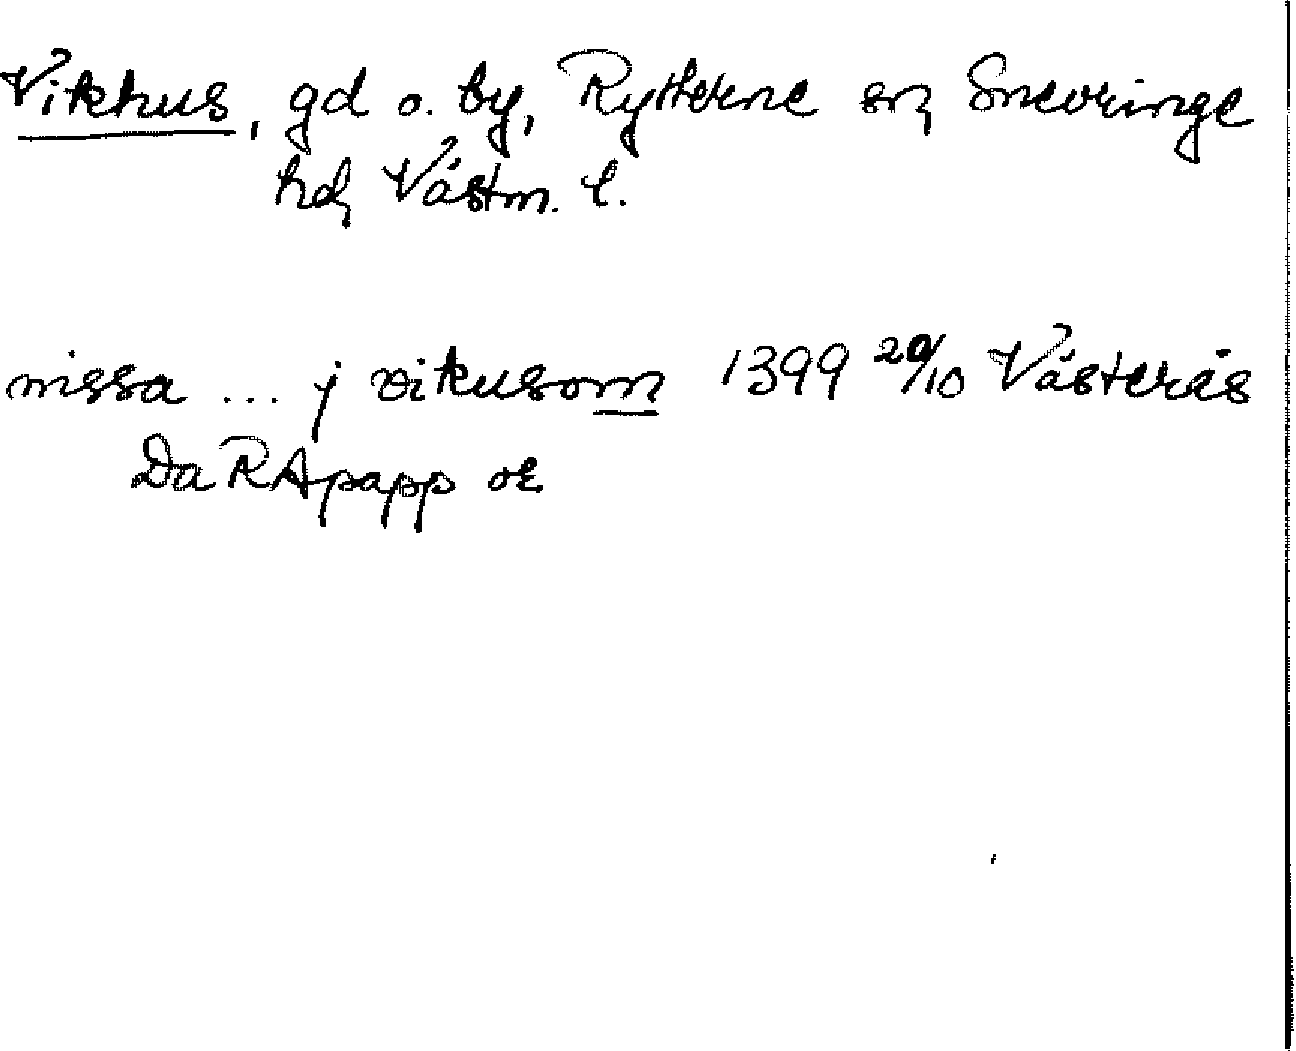 Vikhus, gd o. by, Rytterne sn, Snevringe
hd, Västm. l.
nissa ... j vikusom 1399 20/10 Västerås
Da RApapp or